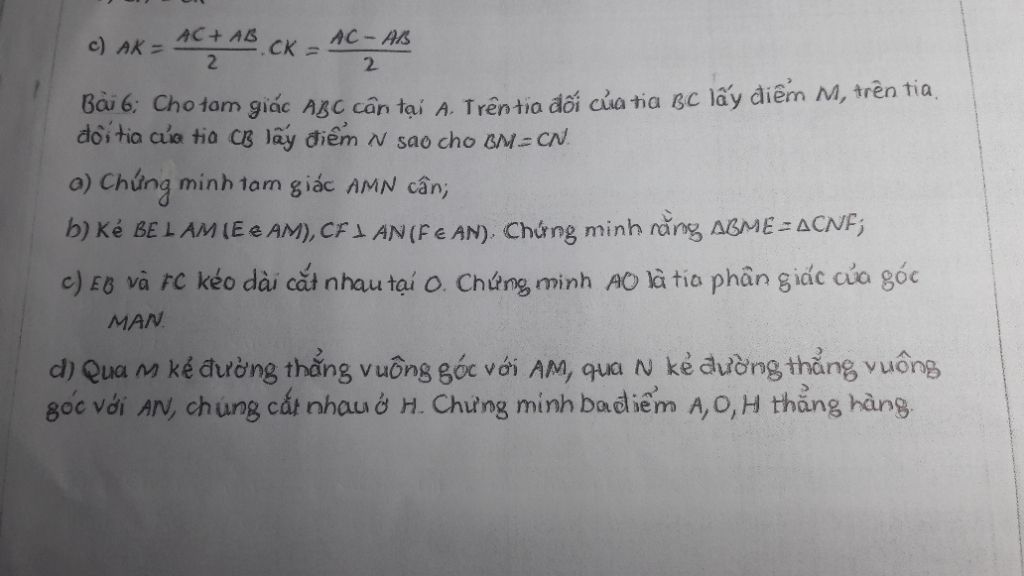 c) AK = \frac{AC + AB}{2}. CK = \frac{AC - AB}{2}
Bài 6: Cho tam giác ABC cân tại A. Trên tia đối của tia BC lấy điểm M, trên tia
đối tia của tia CB lấy điểm N sao cho BM = CN.
a) Chứng minh tam giác AMN cân;
b) Kẻ BE ⊥ AM (E ∈ AM), CF ⊥ AN (F ∈ AN). Chứng minh rằng ΔBME = ΔCNF;
c) EB và FC kéo dài cắt nhau tại O. Chứng minh AO là tia phân giác của góc
MAN.
d) Qua M kẻ đường thẳng vuông góc với AM, qua N kẻ đường thẳng vuông
góc với AN, chúng cắt nhau ở H. Chứng minh ba điểm A, O, H thẳng hàng.